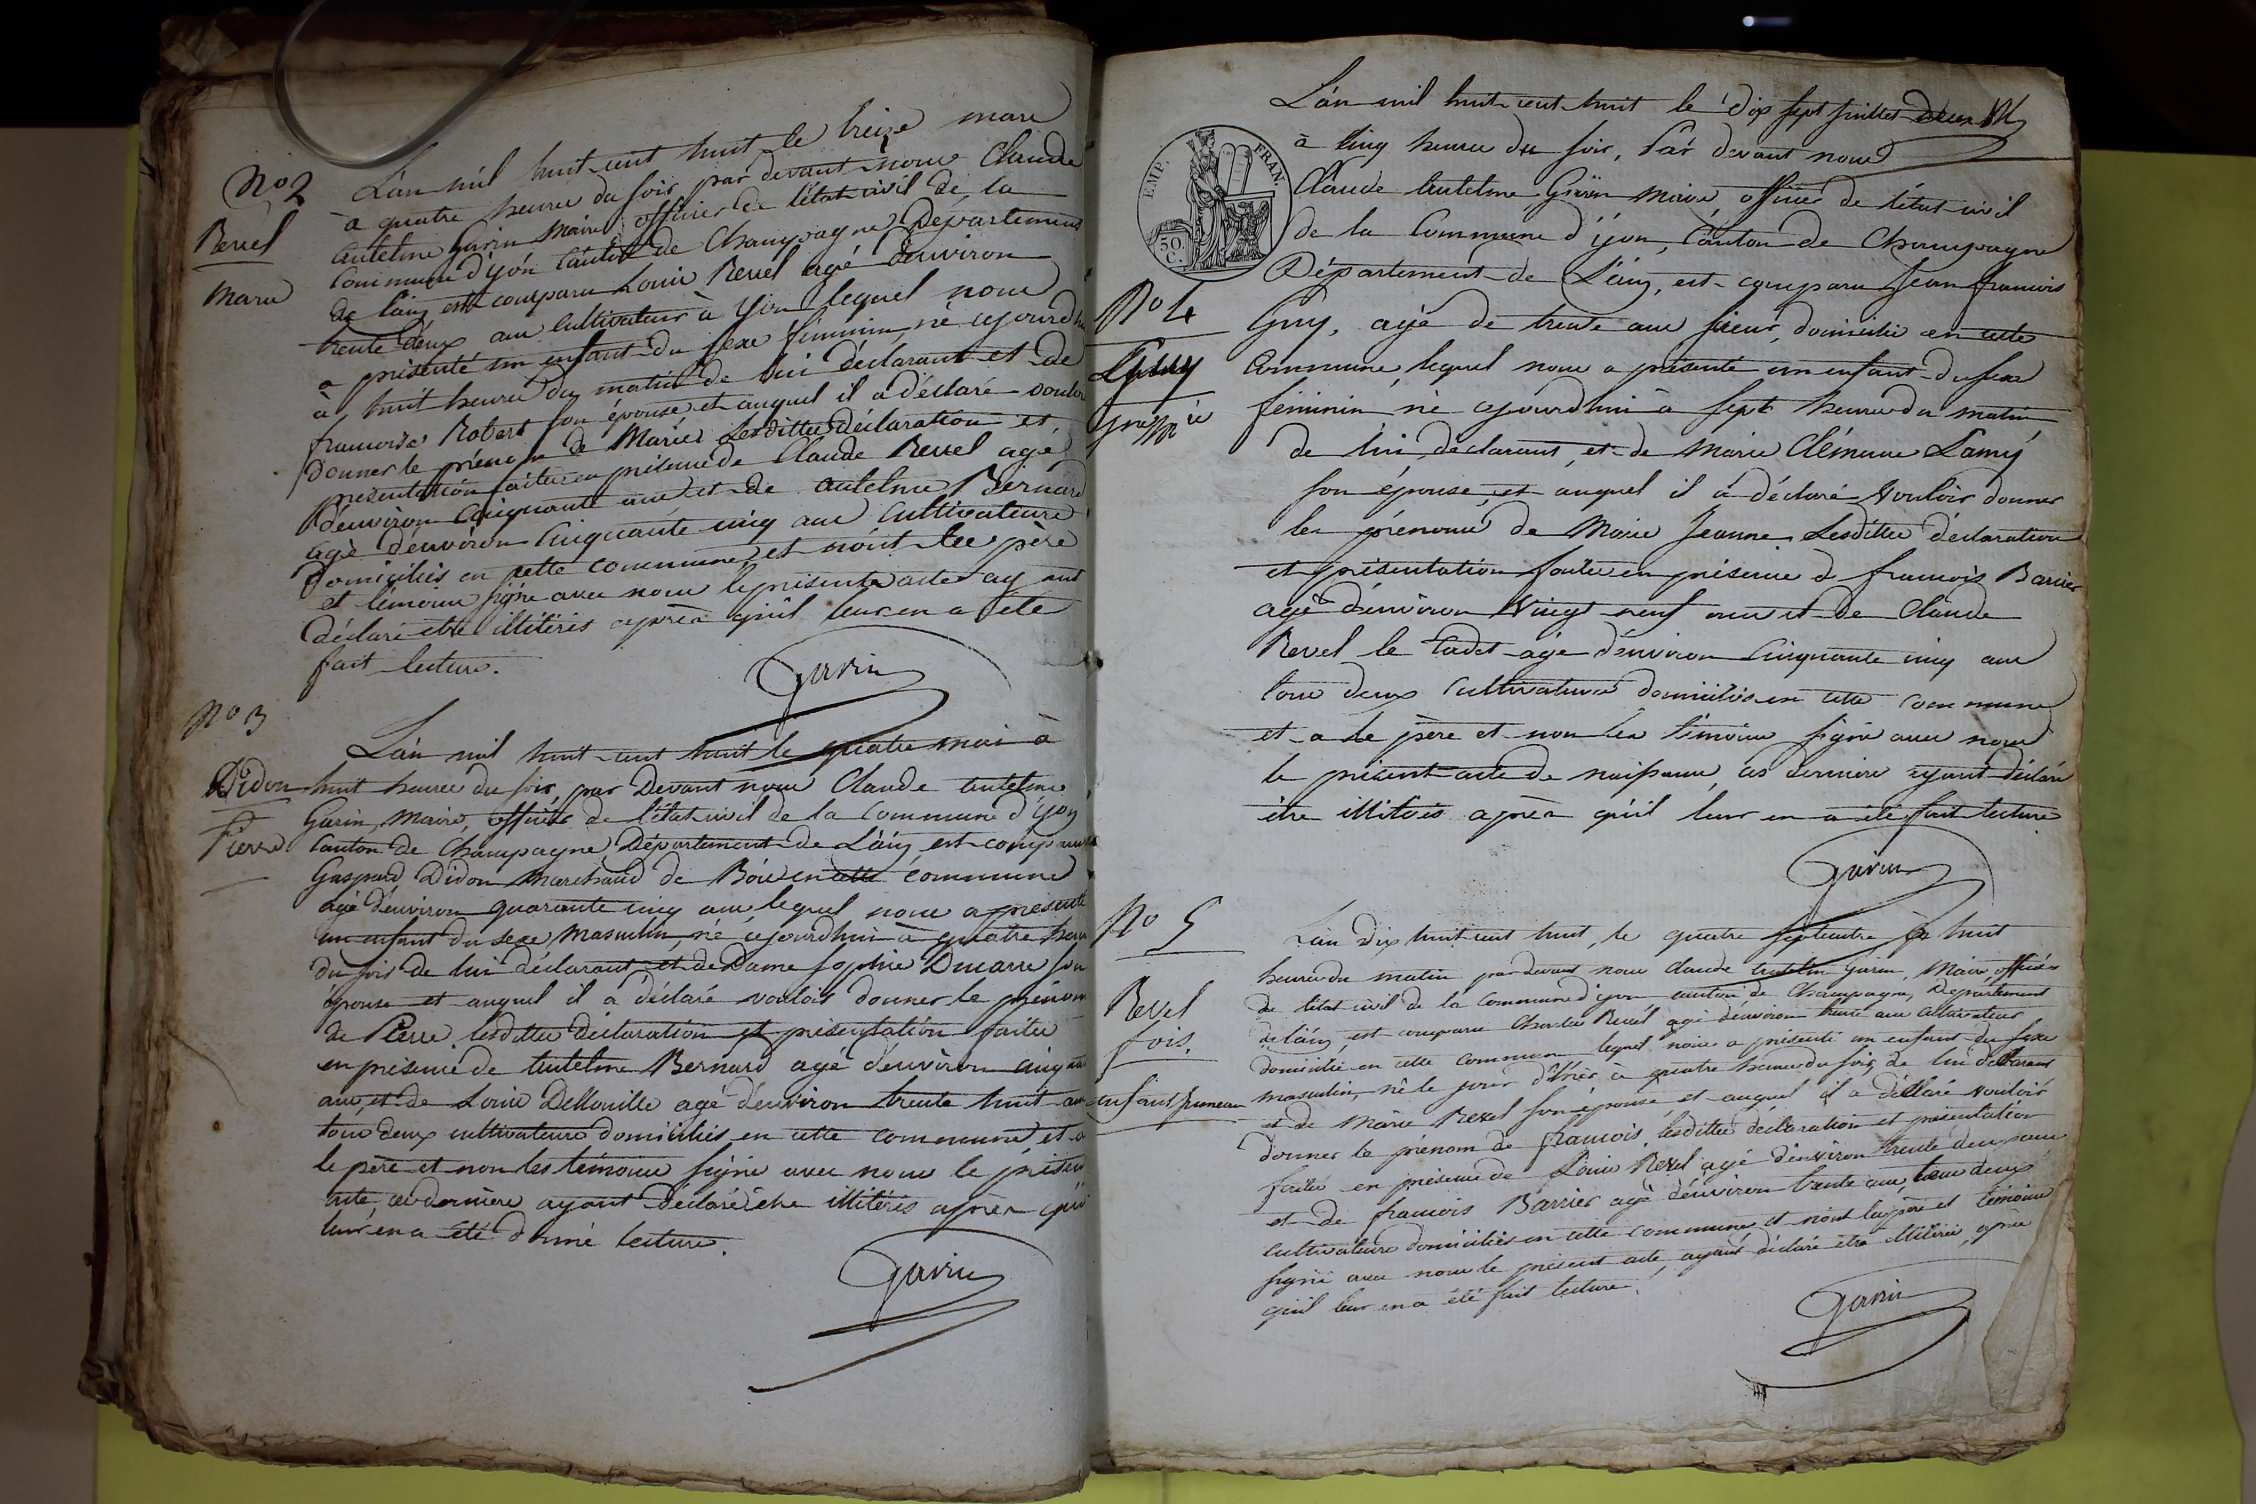 No 2
Revel
Marie
L'an mil huit cent huit le treize mars
à quatre heures du soir, par devant nous Claude
Antelme Garin Maire officier de l'état civil de la
Commune d'yon Canton de Champagne Département
de l'ain est comparu Louis Revel agé d'environ
trente deux ans cultivateur à Yon lequel nous
a présenté un enfant du sexe féminin né cejourd'hui
à huit heures du matin de lui déclarant et de
francoise Robert son épouse et auquel il a déclaré vouloir
donner le prénom de Marie Lesdittes déclaration et
présentation faites en présence de Claude Revel agé
d'environ Cinquante ans et de Antelme Bernard
agé d'environ Cinquante cinq ans Cultivateurs
domiciliés en cette commune et n'ont les père
et témoins signé avec nous le présent acte ayant
déclaré etre illitérés après qu'il leur en a été
fait lecture.
Garin
No 3
Didon
Pierre
L'an mil huit cent huit le quatre mai à
huit heures du soir, par Devant nous Claude Antelme
Garin, Maire, officier de l'état civil de la Commune d'yon
Canton de Champagne Département de L'ain est comparu
Gaspard Didon Marchand de en cette commune
agé d'environ quarante cinq ans lequel nous a présenté
un enfant du sexe Masculin, né cejourd'hui à quatre heures
du soir de lui déclarant et de Dame Sophie Ducarre son
épouse et auquel il a déclaré vouloir donner le prénom
de Pierre. Lesdittes déclaration et présentation faites
en présence de Antelme Bernard agé d'environ cinquante
ans, et de Louis agé d'environ trente huit ans
tous deux cultivateurs domiciliés en cette commune et a
le père et non les témoins signé avec nous le présent
acte, ces derniers ayant Déclaré être illitérés après qu'il
leur en a été donné lecture.
Garin
EMP. FRAN.
50 C.
L'an mil huit cent huit le dix sept juillet
à cinq heures du soir, Par devant nous
Claude Antelme Garin Maire, officier de l'état civil
de la Commune d'yon, Canton de Champagne
Département de L'ain, est comparu Jean francois
No 4
Guy
Guy, agé de trente ans domicilié en cette
Commune, lequel nous a présenté un enfant du sexe
féminin né cejourd'hui à sept heures du matin
de lui déclarant, et de Marie Clémence Lamy
son épouse, et auquel il a déclaré vouloir donner
les prénoms de Marie Jeanne Lesdittes déclaration
et présentation faites en présence de francois Barrier
agé d'environ vingt neuf ans et de Claude
Revel le Cadet agé d'environ Cinquante cinq ans
tous deux Cultivateurs domiciliés en cette commune
et a le père et non les témoins signé avec nous
le présent acte de naissance, ces derniers ayant déclaré
être illitérés après qu'il leur en a été fait lecture
Garin
No 5
Revel
fois.
enfant jumeau
L'an dix huit cent huit, le quatre septembre à huit
heures du matin par devant nous Claude Antelm Garin, Maire, officier
de l'état civil de la Commune d'yon canton de Champagne, Département
de l'ain, est comparu Charles Revel agé d'environ trente ans cultivateur
domicilié en cette commune lequel nous a présenté un enfant du sexe
masculin, né le jour d'hier à quatre heures du soir, de lui déclarant
et de Marie Revel son épouse et auquel il a déclaré vouloir
donner le prénom de francois, lesdittes déclaration et présentation
faites en présence de Louis Revel agé d'environ trente deux ans
et de francois Barrier agé d'environ trente ans, tous deux
cultivateurs domiciliés en cette commune et n'ont les père et témoins
signé avec nous le présent acte, ayant déclaré etre illitérés, après
qu'il leur en a été fait lecture.
Garin